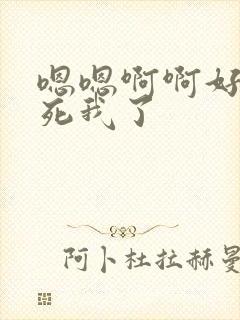 嗯嗯啊啊好
死我了
阿卜杜拉赫曼